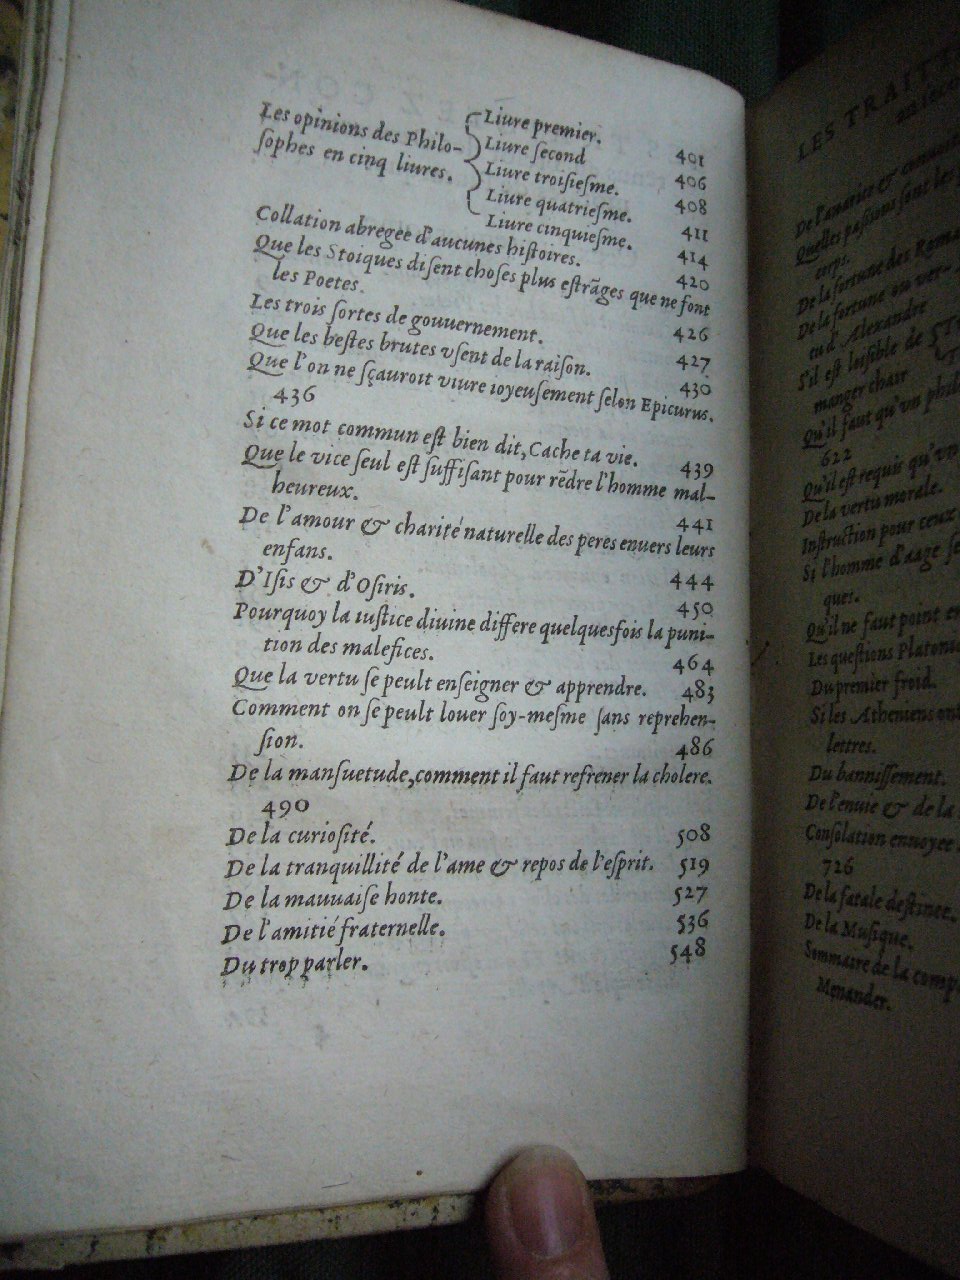 Les opinions des Philo-
ſophes en cinq liures.
Liure premier. 401
Liure ſecond 406
Liure troiſieſme. 408
Liure quatrieſme. 411
Liure cinquieſme. 414
Collation abregee d'aucunes hiſtoires. 420
Que les Stoiques diſent choſes plus eſtrãges que ne font
les Poetes. 426
Les trois ſortes de gouuernement. 427
Que les beſtes brutes vſent de la raiſon. 430
Que l'on ne ſçauroit viure ioyeuſement ſelon Epicurus.
436
Si ce mot commun eſt bien dit, Cache ta vie. 439
Que le vice ſeul eſt ſuffiſant pour rẽdre l'homme mal-
heureux. 441
De l'amour & charité naturelle des peres enuers leurs
enfans. 444
D'Iſis & d'Oſiris. 450
Pourquoy la iuſtice diuine differe quelquesfois la puni-
tion des malefices. 464
Que la vertu ſe peult enſeigner & apprendre. 483
Comment on ſe peult louer ſoy-meſme ſans reprehen-
ſion. 486
De la manſuetude, comment il faut refrener la cholere.
490
De la curioſité. 508
De la tranquillité de l'ame & repos de l'eſprit. 519
De la mauuaiſe honte. 527
De l'amitié fraternelle. 536
Du trop parler. 548
LES TRAITT
De l'amour &
Quelles paſſions ſont les
corps.
De la fortune des Roma
De la fortune ou ver-
tu d'Alexandre
S'il eſt loiſible de
manger chair
Qu'il faut qu'vn phil
622
Qu'il eſt requis qu'vn
De la vertu morale.
Inſtruction pour ceux
Si l'homme d'aage
ques.
Qu'il ne faut point
Les queſtions Platoni
Du premier froid.
Si les Atheniens ont
lettres.
Du banniſſement.
De l'enuie & de la
Conſolation enuoyee
726
De la fatale deſtinee.
De la Muſique.
Sommaire de la comp
Menander.